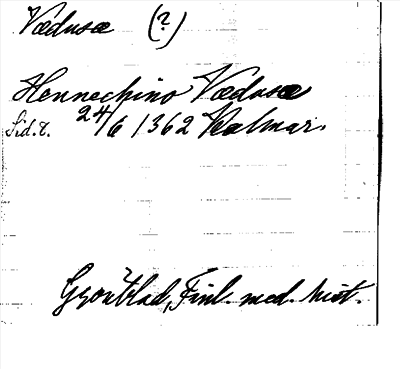 Vædusæ (?)
Hennechino Vædusæ
Sid. t. 24/6 1362 Kalmar.
Grönblad, Finl. med. hist.